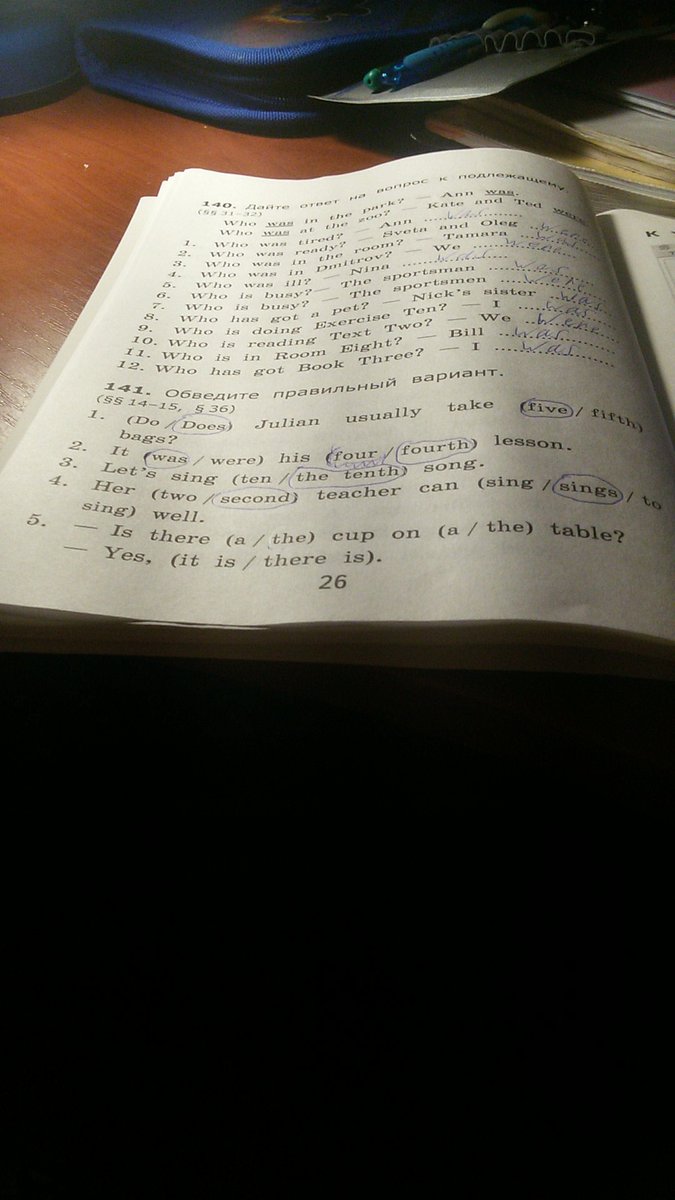 140. Дайте ответ на вопрос к подлежащему.
(§§ 31–32)
Who was in the park? — Ann was.
Who was at the zoo? — Kate and Ted were.
1. Who was tired? — Ann was
2. Who was ready? — Sveta and Oleg were
3. Who was in the room? — Tamara was
4. Who was in Dmitrov? — We were
5. Who was ill? — Nina was
6. Who is busy? — The sportsman was
7. Who is busy? — The sportsmen were
8. Who has got a pet? — Nick's sister was
9. Who is doing Exercise Ten? — I was
10. Who is reading Text Two? — We were
11. Who is in Room Eight? — Bill was
12. Who has got Book Three? — I was
141. Обведите правильный вариант.
(§§ 14–15, § 36)
1. (Do / Does) Julian usually take (five / fifth)
bags?
2. It (was / were) his (four / fourth) lesson.
3. Let's sing (ten / the tenth) song.
4. Her (two / second) teacher can (sing / sings / to
sing) well.
5. — Is there (a / the) cup on (a / the) table?
— Yes, (it is / there is).
26
К